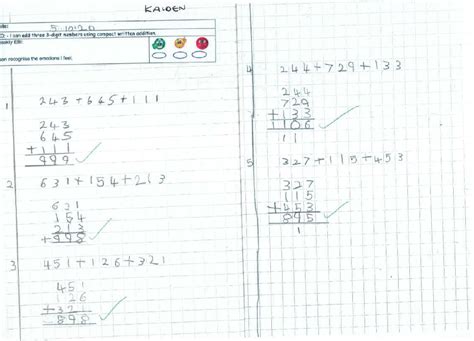 KAIDEN
5.10.20
I can add three 3-digit numbers using compact written addition.
can recognise the emotions I feel.
1
243 + 645 + 111
243
645
+111
999
2
631 + 154 + 213
631
154
213
+998
3
451 + 126 + 321
451
126
+321
898
4
244 + 729 + 133
244
729
+133
1106
11
5
327 + 115 + 453
327
115
+453
895
1